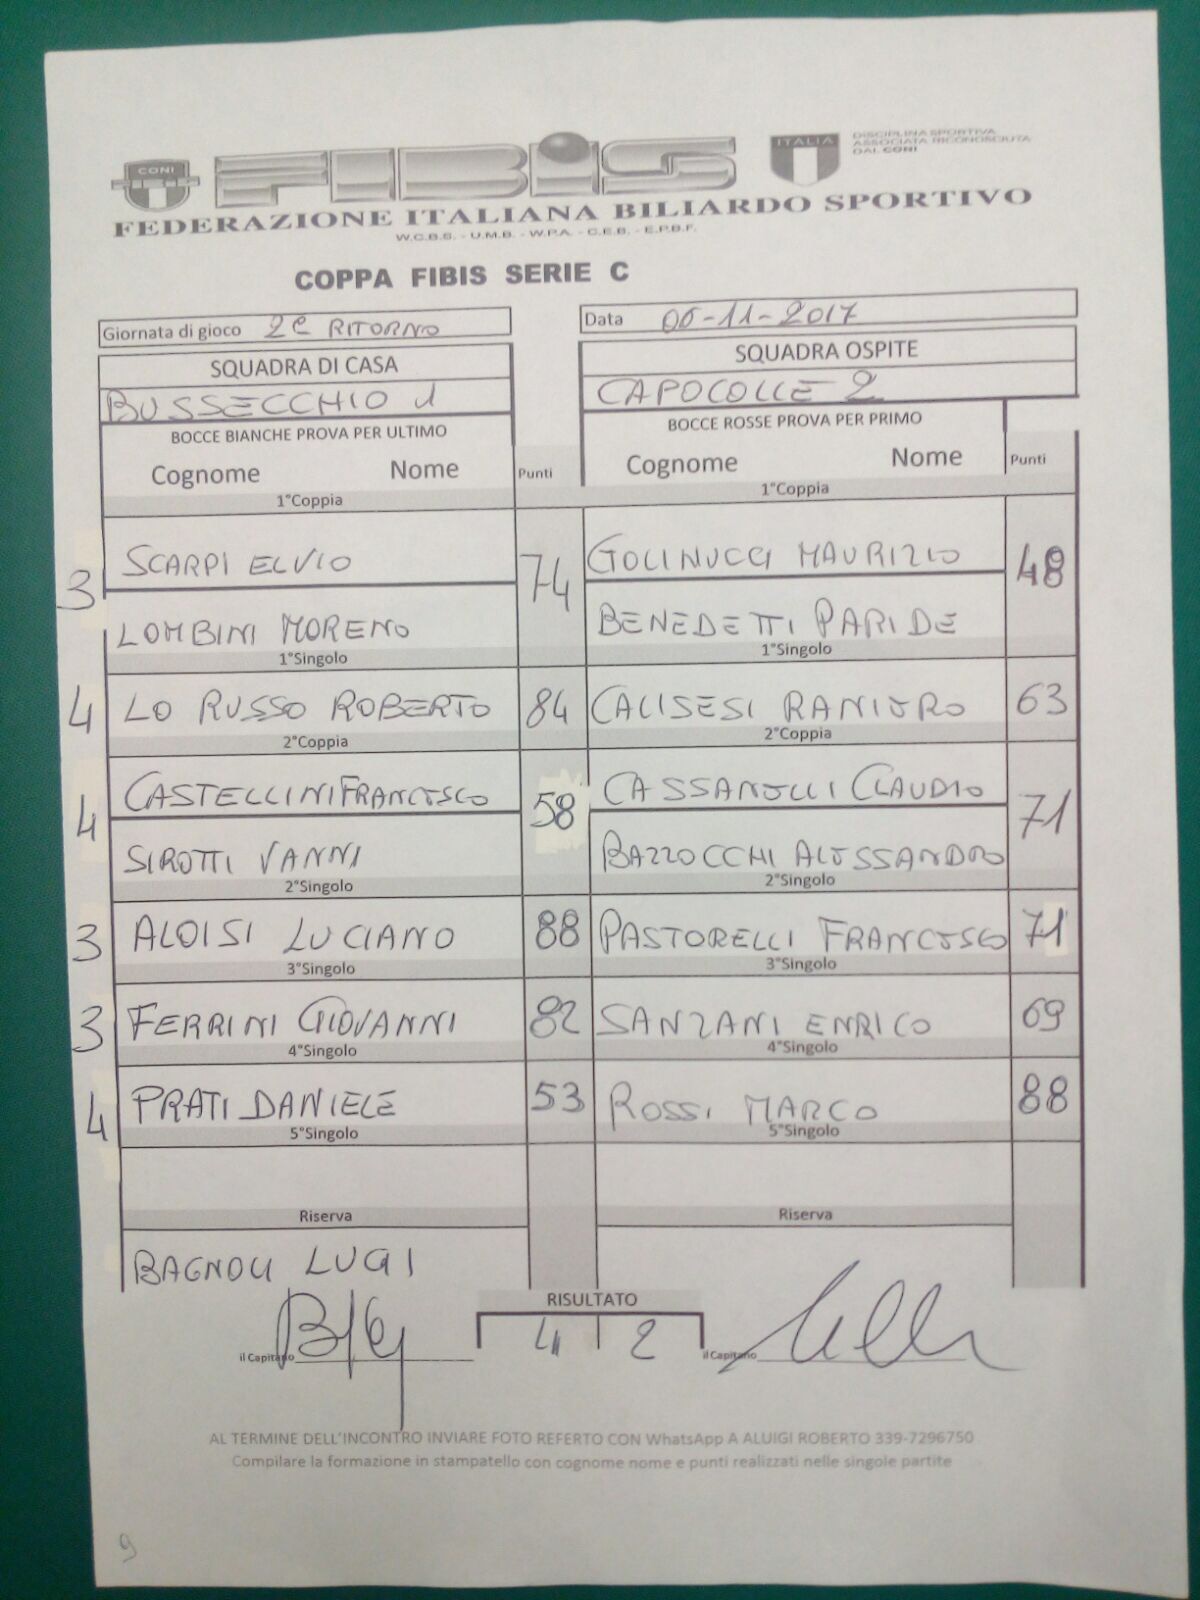 CONI FIBiS ITALIA DISCIPLINA SPORTIVA
ASSOCIATA RICONOSCIUTA
DAL CONI
FEDERAZIONE ITALIANA BILIARDO SPORTIVO
W.C.B.S. - U.M.B. - W.P.A. - C.E.B. - E.P.B.F.
COPPA FIBIS SERIE C
Giornata di gioco 2ª RITORNO Data 06-11-2017
SQUADRA DI CASA SQUADRA OSPITE
BUSSECCHIO 1 CAPOCOLLE 2
BOCCE BIANCHE PROVA PER ULTIMO BOCCE ROSSE PROVA PER PRIMO
Cognome Nome Punti Cognome Nome Punti
1°Coppia 1°Coppia
3 SCARPI ELVIO 74 GOLINUCCI MAURIZIO 48
LOMBINI MORENO BENEDETTI PARIDE
1°Singolo 1°Singolo
4 LO RUSSO ROBERTO 84 CALISESI RANIERO 63
2°Coppia 2°Coppia
4 CASTELLINI FRANCESCO 58 CASSANELLI CLAUDIO 71
SIROTTI VANNI BAZZOCCHI ALESSANDRO
2°Singolo 2°Singolo
3 ALOISI LUCIANO 88 PASTORELLI FRANCESCO 71
3°Singolo 3°Singolo
3 FERRINI GIOVANNI 82 SANZANI ENRICO 69
4°Singolo 4°Singolo
4 PRATI DANIELE 53 ROSSI MARCO 88
5°Singolo 5°Singolo
Riserva Riserva
BAGNOLI LUGI
RISULTATO
il Capitano 4 2 il Capitano
AL TERMINE DELL'INCONTRO INVIARE FOTO REFERTO CON WhatsApp A ALUIGI ROBERTO 339-7296750
Compilare la formazione in stampatello con cognome nome e punti realizzati nelle singole partite
9